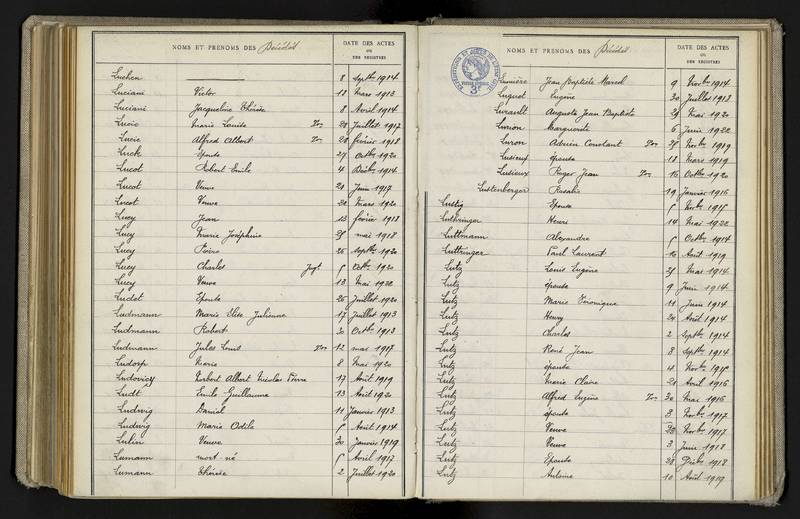 NOMS ET PRÉNOMS DES Décédés
DATE DES ACTES
OU
DES REGISTRES
Luchen 8 Septbre 1914
Luciani Victor 18 Mars 1913
Luciani Jacqueline Thérèse 8 Avril 1914
Lucie Marie Louise 28 Juillet 1917
Lucie Alfred Albert 28 février 1918
Luck épouse 27 Octbre 1920
Lucot Robert Emile 4 Décbre 1914
Lucot Veuve 21 Juin 1917
Lucot Veuve 22 Mars 1920
Lucy Jean 13 février 1918
Lucy Marie Joséphine mai 1918
Lucy Pierre 25 Septbre 1920
Lucy Charles Jugt Octbre 1920
Lucy Veuve 13 Mai 1922
Ludet Epouse 26 Juillet 1920
Ludmann Marie Elise Julienne 17 Juillet 1913
Ludmann Robert 30 Octbre 1913
Ludmann Jules Louis 12 mars 1917
Ludorf Marie 8 Mai 1920
Ludovicy Norbert Albert Nicolas Pierre 17 Août 1919
Ludt Emile Guillaume 13 Août 1920
Ludwig Daniel 11 Janvier 1913
Ludwig Marie Odile Août 1914
Lulin Veuve 30 Janvier 1919
Lumann mort né Avril 1917
Lumann Thérèse 2 Juillet 1920
NOMS ET PRÉNOMS DES Décédés
DATE DES ACTES
OU
DES REGISTRES
Lumière Jean Baptiste Marcel 9 Novbre 1914
Luquet Eugène 30 Juillet 1913
Lurault Auguste Jean Baptiste 29 Mai 1920
Luron Marguerite 6 Juin 1922
Luron Adrien Constant Novbre 1919
Lusieux épouse 18 Mars 1919
Lusieux Roger Jean 16 Octbre 1920
Lustenberger Rosalie 19 Janvier 1916
Lustig Epouse Novbre 1915
Luthringer Henri 14 Mai 1922
Luttmann Alexandre Octbre 1914
Luttringer Paul Laurent 10 Août 1919
Lutz Louis Eugène Mai 1914
Lutz épouse 9 Juin 1914
Lutz Marie Véronique 11 Juin 1914
Lutz Henry 24 Août 1914
Lutz Charles 2 Septbre 1914
Lutz René Jean 8 Septbre 1914
Lutz épouse 4 Novbre 1915
Lutz Marie Claire 21 Avril 1916
Lutz Alfred Eugène 30 Mai 1916
Lutz épouse 8 Novbre 1917
Lutz Veuve 22 Novbre 1917
Lutz Veuve 3 Juin 1918
Lutz Epouse 28 Décbre 1918
Lutz Antoine 10 Août 1919